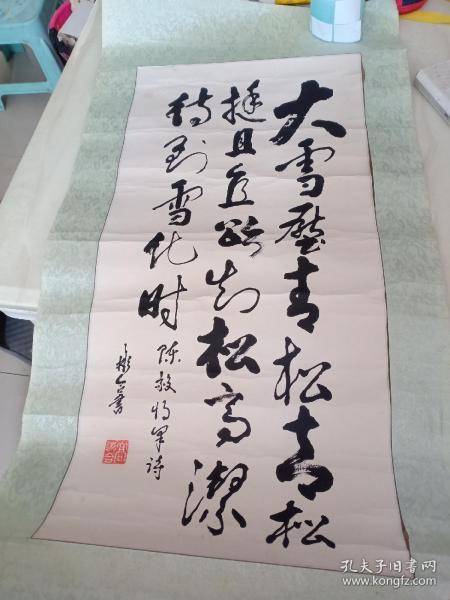 大雪壓青松青松
挺且直欲知松高潔
待到雪化时 陈毅将军诗
书
孔夫子旧书网
www.kongfz.com